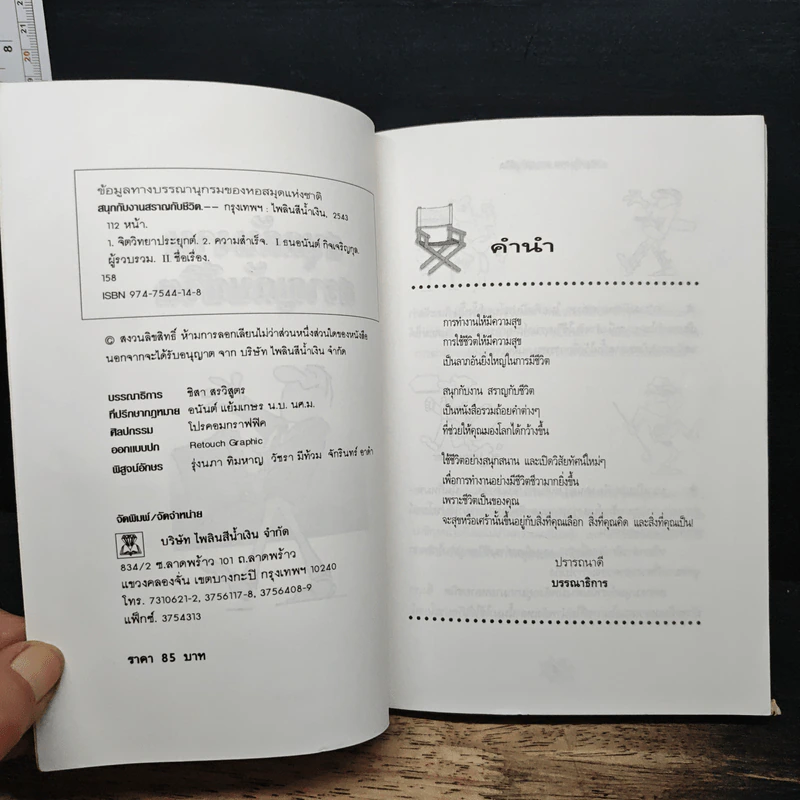 8
21
20
ข้อมูลทางบรรณานุกรมของหอสมุดแห่งชาติ
สนุกกับงานสราญกับชีวิต.-- กรุงเทพฯ : ไพลินสีน้ำเงิน, 2543
112 หน้า.
1. จิตวิทยาประยุกต์. 2. ความสำเร็จ. I ธนอนันต์ กิจเจริญกุล,
ผู้รวบรวม. II ชื่อเรื่อง.
158
ISBN 974-7544-14-8
© สงวนลิขสิทธิ์ ห้ามการลอกเลียนไม่ว่าส่วนหนึ่งส่วนใดของหนังสือ
นอกจากจะได้รับอนุญาต จาก บริษัท ไพลินสีน้ำเงิน จำกัด
บรรณาธิการ ชิสา สรวิสูตร
ที่ปรึกษากฎหมาย อนันต์ แย้มเกษร น.บ. นศ.ม.
ศิลปกรรม โปรคอมกราฟฟิค
ออกแบบปก Retouch Graphic
พิสูจน์อักษร รุ่งนภา ทิมหาญ วัชรา มีท้วม จักรินทร์ อาดำ
จัดพิมพ์/จัดจำหน่าย
บริษัท ไพลินสีน้ำเงิน จำกัด
834/2 ซ.ลาดพร้าว 101 ถ.ลาดพร้าว
แขวงคลองจั่น เขตบางกะปิ กรุงเทพฯ 10240
โทร. 7310621-2, 3756117-8, 3756408-9
แฟ็กซ์. 3754313
ราคา 85 บาท
คำนำ
การทำงานให้มีความสุข
การใช้ชีวิตให้มีความสุข
เป็นลาภอันยิ่งใหญ่ในการมีชีวิต
สนุกกับงาน สราญกับชีวิต
เป็นหนังสือรวมถ้อยคำต่างๆ
ที่ช่วยให้คุณมองโลกได้กว้างขึ้น
ใช้ชีวิตอย่างสนุกสนาน และเปิดวิสัยทัศน์ใหม่ๆ
เพื่อการทำงานอย่างมีชีวิตชีวามากยิ่งขึ้น
เพราะชีวิตเป็นของคุณ
จะสุขหรือเศร้านั้นขึ้นอยู่กับสิ่งที่คุณเลือก สิ่งที่คุณคิด และสิ่งที่คุณเป็น!
ปรารถนาดี
บรรณาธิการ